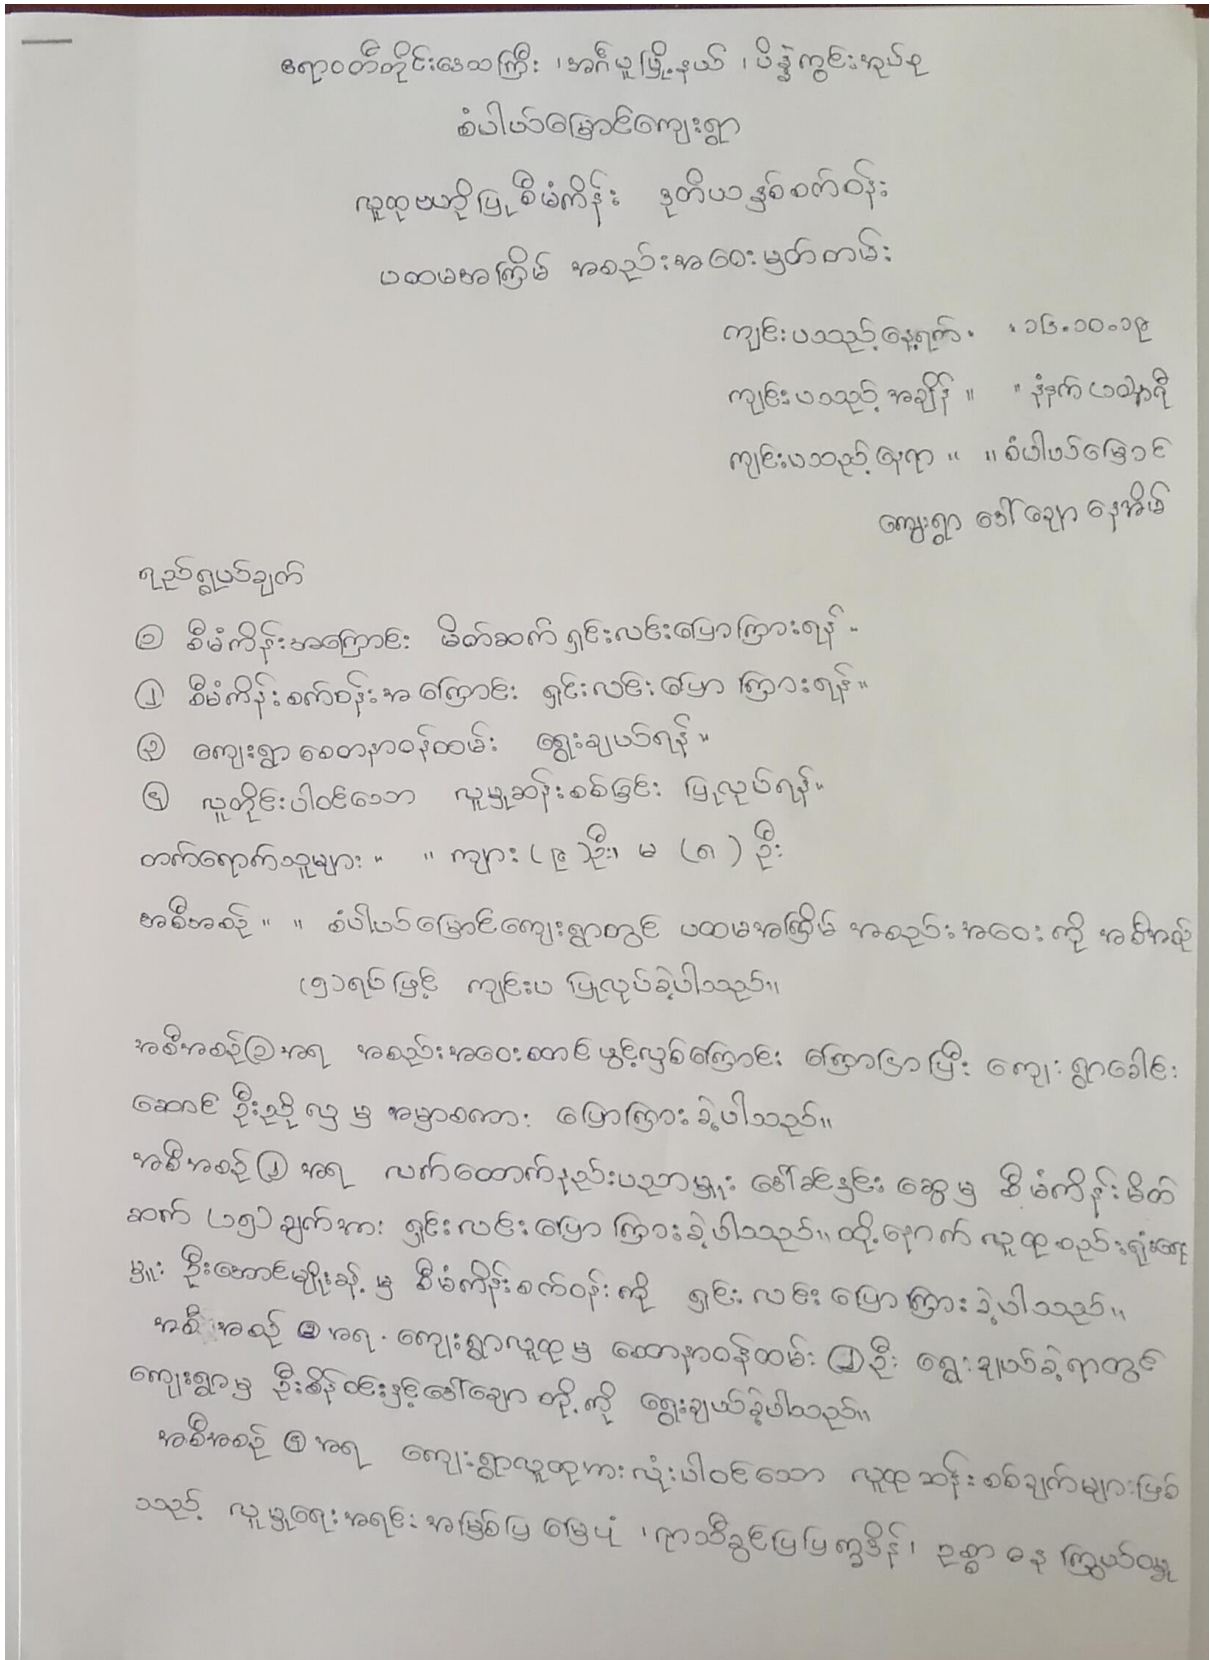 ဧရာဝတီတိုင်းဒေသကြီး ၊ အင်္ဂပူမြို့နယ် ၊ ပိန္နဲကွင်းအုပ်စု
စံပါယ်မြောင်ကျေးရွာ
လူထုဗဟိုပြုစီမံကိန်း ဒုတိယနှစ်စက်ဝန်း
ပထမအကြိမ် အစည်းအဝေးမှတ်တမ်း
ကျင်းပသည့်နေ့ရက်။ ။ ၁၆.၁၀.၁၉
ကျင်းပသည့်အချိန် ။ ။ နံနက် ၊ နာရီ
ကျင်းပသည့်နေရာ ။ ။ စံပါယ်မြောင်
ကျေးရွာ ဒေါ်ချော နေအိမ်
ရည်ရွယ်ချက်
၁ စီမံကိန်းအကြောင်း မိတ်ဆက် ရှင်းလင်းပြောကြားရန် ။
၂ စီမံကိန်းစက်ဝန်းအကြောင်း ရှင်းလင်းပြောကြားရန် ။
၃ ကျေးရွာစေတနာ့ဝန်ထမ်း ရွေးချယ်ရန် ။
၄ လူတိုင်းပါဝင်သော လူမှုဆန်းစစ်ခြင်း ပြုလုပ်ရန်။
တက်ရောက်သူများ ။ ။ ကျား (၉)ဦး၊ မ ( ) ဦး
အစီအစဉ် ။ ။ စံပါယ်မြောင်ကျေးရွာတွင် ပထမအကြိမ် အစည်းအဝေးကို အစီအစဉ်
(၅)ရပ်ဖြင့် ကျင်းပ ပြုလုပ်ခဲ့ပါသည်။
အစီအစဉ် ၁ အရ အစည်းအဝေးစတင်ဖွင့်လှစ်ကြောင်း ကြေငြာပြီး ကျေးရွာခေါင်း
ဆောင် ဦးညိုလှ မှ အမှာစကား ပြောကြားခဲ့ပါသည်။
အစီအစဉ် ၂ အရ လက်ထောက်နည်းပညာမှူး ဒေါ်ခင်နှင်းဆွေမှ စီမံကိန်းမိတ်
ဆက် (၁၅)ချက်အား ရှင်းလင်းပြောကြားခဲ့ပါသည်။ ထို့နောက် လူထုစည်းရုံးရေး
မှူး ဦးအောင်မျိုးခန့် မှ စီမံကိန်းစက်ဝန်းကို ရှင်းလင်းပြောကြားခဲ့ပါသည်။
အစီအစဉ် ၃ အရ ကျေးရွာလူထုမှ စေတနာ့ဝန်ထမ်း ၂ ဦး ရွေးချယ်ခဲ့ရာတွင်
ကျေးရွာမှ ဦးစိန်ဝင်းနှင့်ဒေါ်ချော တို့ကို ရွေးချယ်ခဲ့ပါသည်။
အစီအစဉ် ၄ အရ ကျေးရွာလူထုအားလုံးပါဝင်သော လူထုဆန်းစစ်ချက်များဖြစ်
သည့် လူမှုရေးအရင်းအမြစ်ပြ မြေပုံ ၊ ရာသီခွင်ပြပြက္ခဒိန်၊ ဥစ္စာ ဓန ကြွယ်ဝမှု